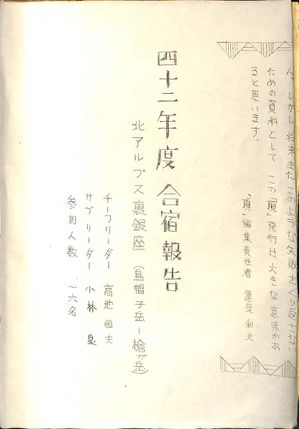 今、しかし将来またこのような失敗をくり返さない
ための資料として、この「頂」発行は、大きな意味があ
ると思います。
「頂」編集責任者 蓮見和夫
四十二年度 合宿報告
北アルプス裏銀座(烏帽子岳ー槍が岳)
チーフリーダー 高池恒夫
サブリーダー 小林晃
参加人数 一六名